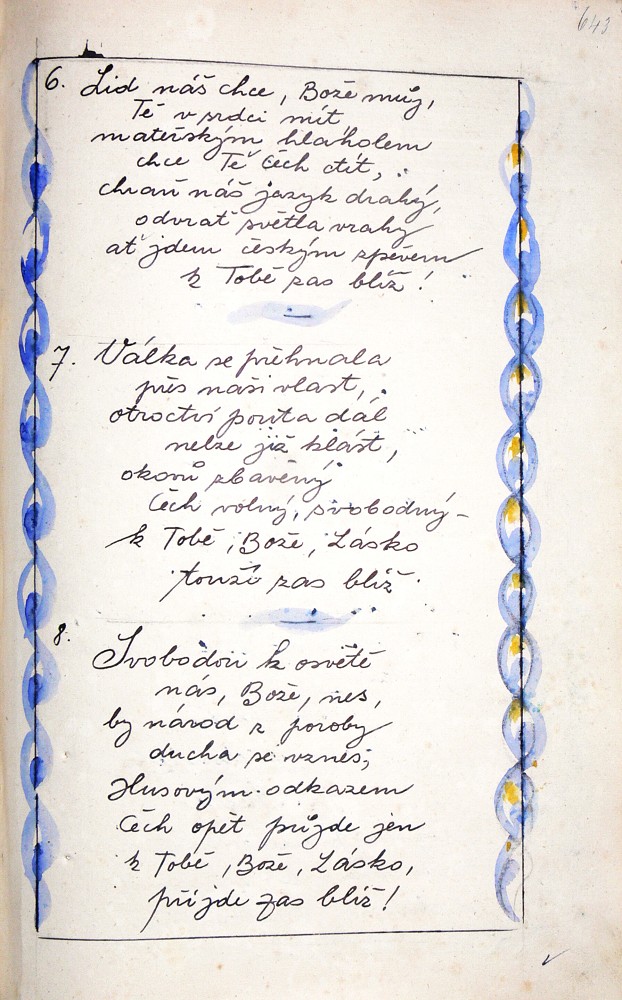 643
6. Lid náš chce, Bože můj,
Tě v srdci mít
mateřským hlaholem
chce Tě Čech ctít,
chraň náš jazyk drahý,
odvrať světla vrahy
ať jdem českým zpěvem
k Tobě zas blíž!
7. Válka se přehnala
přes naši vlast,
otroctví pouta dál
nelze již klást,
okovů zbavěný
Čech volný, svobodný –
k Tobě, Bože, Lásko
touží zas blíž.
8. Svobodou k osvětě
nás, Bože, nes,
by národ z poroby
ducha se vznes;
Husovým odkazem
Čech opět půjde jen
k Tobě, Bože, Lásko,
příjde zas blíž!